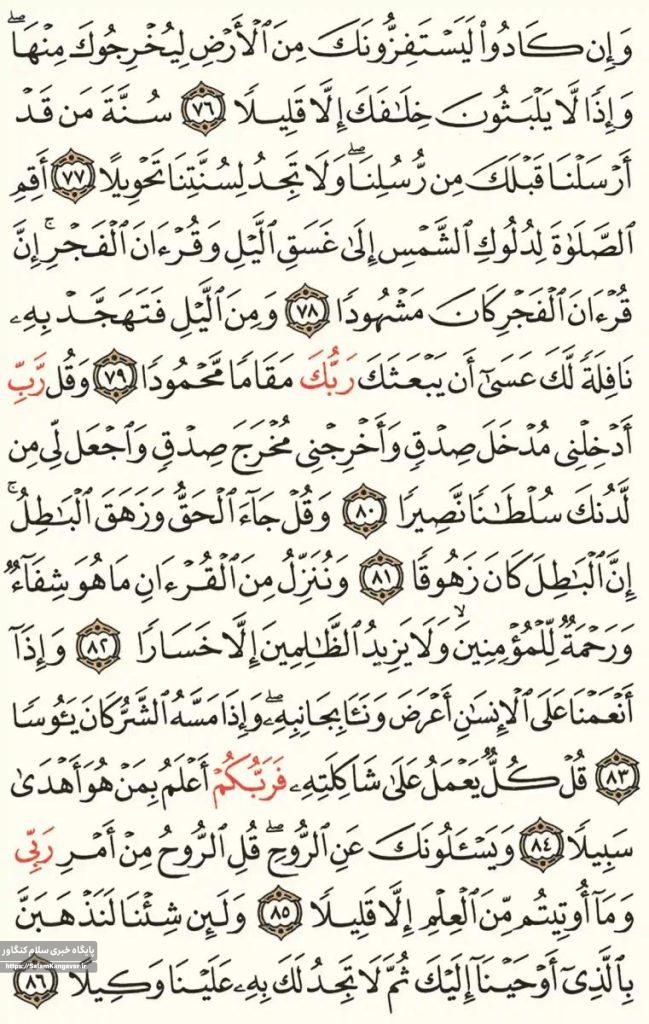 وَإِن كَادُوا۟ لَيَسْتَفِزُّونَكَ مِنَ ٱلْأَرْضِ لِيُخْرِجُوكَ مِنْهَا ۖ
وَإِذًا لَّا يَلْبَثُونَ خِلَٰفَكَ إِلَّا قَلِيلًا ٧٦ سُنَّةَ مَن قَدْ
أَرْسَلْنَا قَبْلَكَ مِن رُّسُلِنَا ۖ وَلَا تَجِدُ لِسُنَّتِنَا تَحْوِيلًا ٧٧ أَقِمِ
ٱلصَّلَوٰةَ لِدُلُوكِ ٱلشَّمْسِ إِلَىٰ غَسَقِ ٱلَّيْلِ وَقُرْءَانَ ٱلْفَجْرِ ۚ إِنَّ
قُرْءَانَ ٱلْفَجْرِ كَانَ مَشْهُودًا ٧٨ وَمِنَ ٱلَّيْلِ فَتَهَجَّدْ بِهِۦ
نَافِلَةً لَّكَ عَسَىٰٓ أَن يَبْعَثَكَ رَبُّكَ مَقَامًا مَّحْمُودًا ٧٩ وَقُل رَّبِّ
أَدْخِلْنِى مُدْخَلَ صِدْقٍ وَأَخْرِجْنِى مُخْرَجَ صِدْقٍ وَٱجْعَل لِّى مِن
لَّدُنكَ سُلْطَٰنًا نَّصِيرًا ٨٠ وَقُلْ جَآءَ ٱلْحَقُّ وَزَهَقَ ٱلْبَٰطِلُ ۚ
إِنَّ ٱلْبَٰطِلَ كَانَ زَهُوقًا ٨١ وَنُنَزِّلُ مِنَ ٱلْقُرْءَانِ مَا هُوَ شِفَآءٌ
وَرَحْمَةٌ لِّلْمُؤْمِنِينَ ۙ وَلَا يَزِيدُ ٱلظَّٰلِمِينَ إِلَّا خَسَارًا ٨٢ وَإِذَآ
أَنْعَمْنَا عَلَى ٱلْإِنسَٰنِ أَعْرَضَ وَنَـَٔا بِجَانِبِهِۦ ۖ وَإِذَا مَسَّهُ ٱلشَّرُّ كَانَ يَـُٔوسًا
٨٣ قُلْ كُلٌّ يَعْمَلُ عَلَىٰ شَاكِلَتِهِۦ فَرَبُّكُمْ أَعْلَمُ بِمَنْ هُوَ أَهْدَىٰ
سَبِيلًا ٨٤ وَيَسْـَٔلُونَكَ عَنِ ٱلرُّوحِ ۖ قُلِ ٱلرُّوحُ مِنْ أَمْرِ رَبِّى
وَمَآ أُوتِيتُم مِّنَ ٱلْعِلْمِ إِلَّا قَلِيلًا ٨٥ وَلَئِن شِئْنَا لَنَذْهَبَنَّ
بِٱلَّذِىٓ أَوْحَيْنَآ إِلَيْكَ ثُمَّ لَا تَجِدُ لَكَ بِهِۦ عَلَيْنَا وَكِيلًا ٨٦
پایگاه خبری سلام کنگاور
https://SalamKangavar.ir